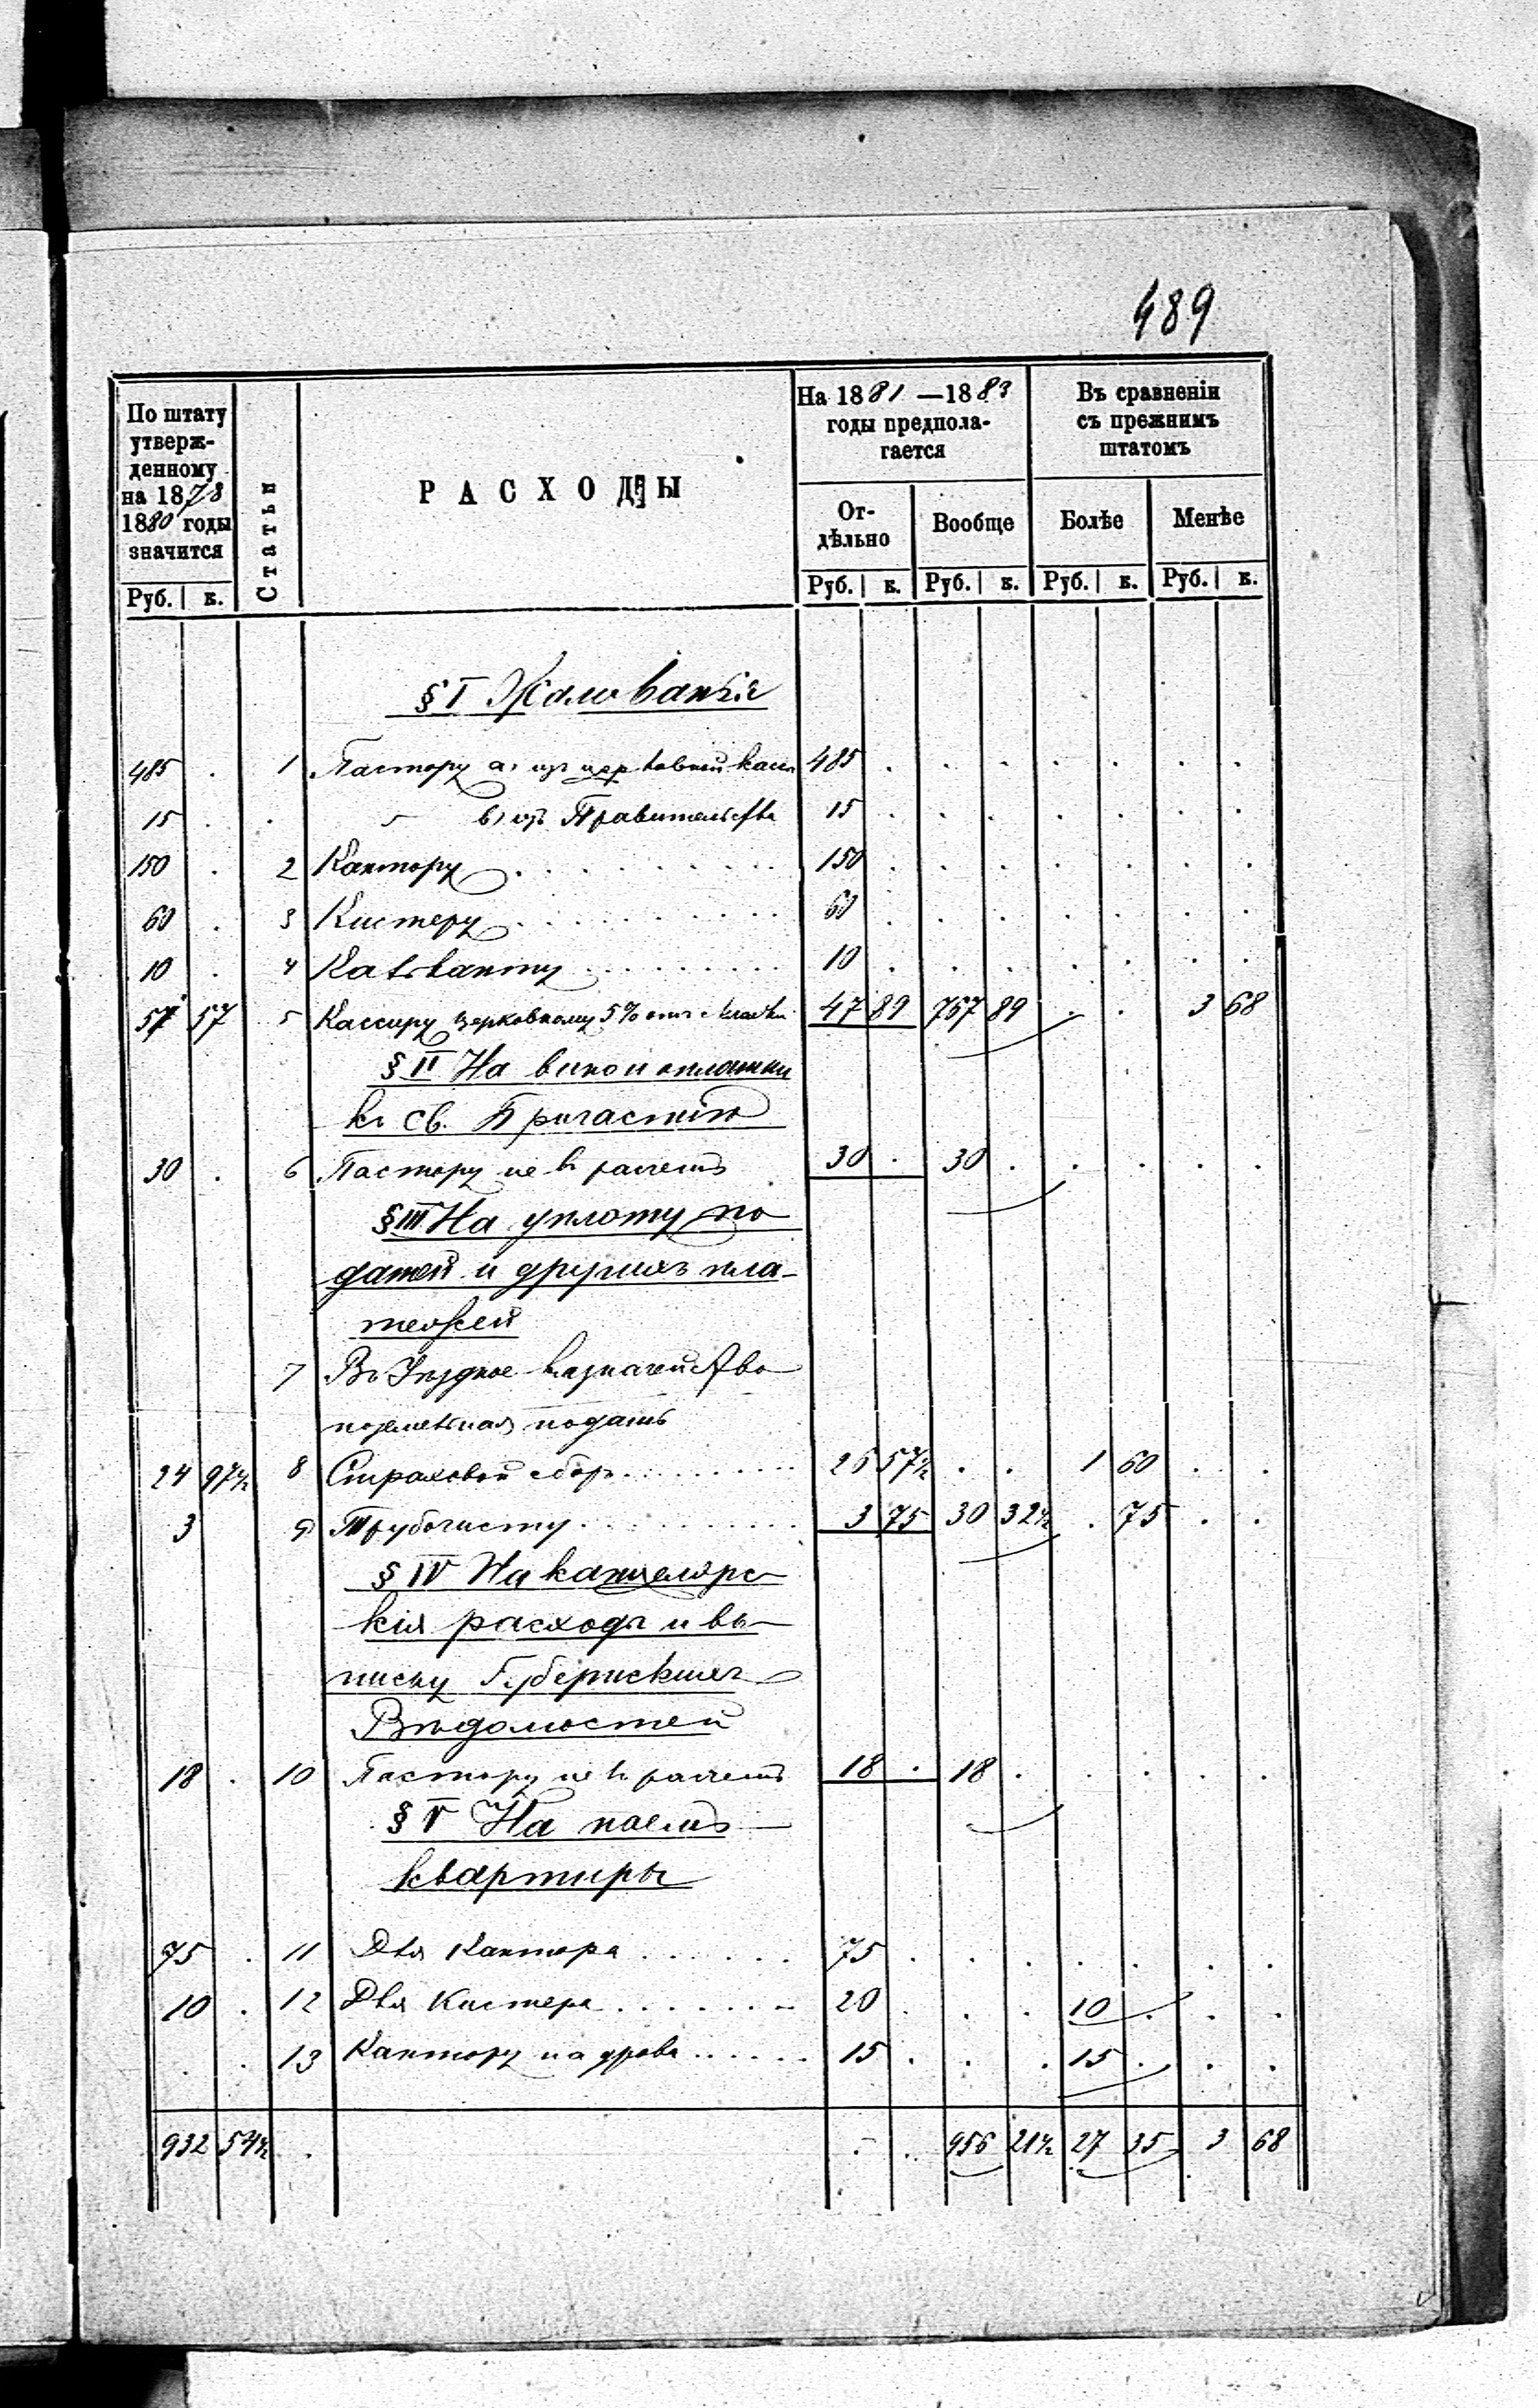 489
По штату утвержденному на 1878 1880 годы значится
Статьи
РАСХОДЫ
На 1881 —1883 годы предполагается
Въ сравненіи съ прежнимъ штатомъ
Отдѣльно Вообще Болѣе Менѣе
Руб. к. Руб. к. Руб. к. Руб. к. Руб. к.
§ I Жалованье
485 . 1 Пастору а, изъ церковной кассы 485 . . . . . . .
15 . . „ в) изъ Правительства 15 . . . . . . .
150 . 2 Кантору . . . . . . . . 150 . . . . . . .
60 . 3 Кистеру . . . . . . . . 60 . . . . . . .
10 . 4 Кальканту . . . . . . . . 10 . . . . . . .
57 57 5 Кассиру церковному 5% отъ 47 89 767 89 . . 3 68
§ II На вино и оплатки
къ св. Причастію
30 . 6 Пастору не въ расчетъ 30 . 30 . . . . .
§ III На уплату по
датей и другихъ пла-
тежей
7 Въ Уѣздное казначейство
поземельная подать
24 97½ 8 Страховой сборъ . . . . . . . 26 57½ . . 1 60 . .
3 9 Трубочисту . . . . . . . . 3 75 30 32½ . 75 . .
§ IV На канцелярс-
кія расходы и вы-
писку Губернскихъ
Вѣдомостей
18 . 10 Пастору не въ расчетъ 18 . 18 . . . . .
§ V На наемъ
квартиры
75 . 11 Для Кантора . . . . . . 75 . . . . . . .
10 . 12 Для Кистера . . . . . . 20 . . . 10 . . .
. . 13 Кантору на дрова . . . . . 15 . . . 15 . . .
932 54½ . . . 956 21½ 27 35 3 68